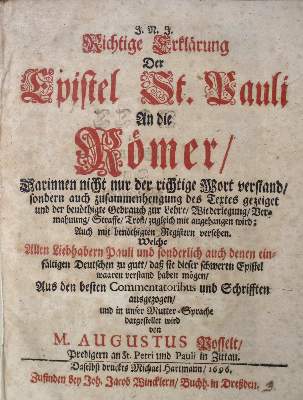 J. N. J.
Richtige Erklärung
Der
Epistel St. Pauli
An die
Römer/
Darinnen nicht nur der richtige Wort verstand/
sondern auch zusammenhengung des Textes gezeiget
und der benöthigte Gebrauch zur Lehre/ Wiederlegung/ Ver-
mahnung/ Straffe/ Trost/ zugleich mit angehangen wird;
Auch mit benöthigten Registern versehen.
Welche
Allen Liebhabern Pauli und sonderlich auch denen ein-
fältigen Deutschen zu gutt/ daß sie dieser schweren Epistel
waaren verstand haben mögen/
Aus den besten Commentatoribus und Schrifften
ausgezogen/
und in unser Mutter-Sprache
dargestellet wird
von
M. AUGUSTUS Posselt/
Predigern an St. Petri und Pauli in Zittau.
Daselbst druckts Michael Hartmann/ 1696.
Zufinden bey Joh. Jacob Wincklern/ Buchh. in Dreßden.